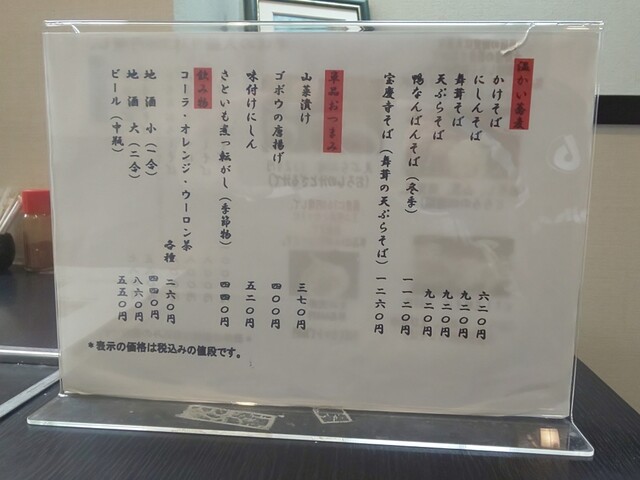 温かい蕎麦
かけそば 六二〇円
にしんそば 九二〇円
舞茸そば 九二〇円
天ぷらそば 九二〇円
鴨なんばんそば(冬季) 一一二〇円
宝慶寺そば(舞茸の天ぷらそば) 一二六〇円
単品おつまみ
山菜漬け 三七〇円
ゴボウの唐揚げ 四〇〇円
味付けにしん 五二〇円
さといも煮っ転がし(季節物) 四四〇円
飲み物
コーラ・オレンジ・ウーロン茶 各種 二六〇円
地酒 小(一合) 四四〇円
地酒 大(二合) 八六〇円
ビール(中瓶) 五五〇円
*表示の価格は税込みの値段です。